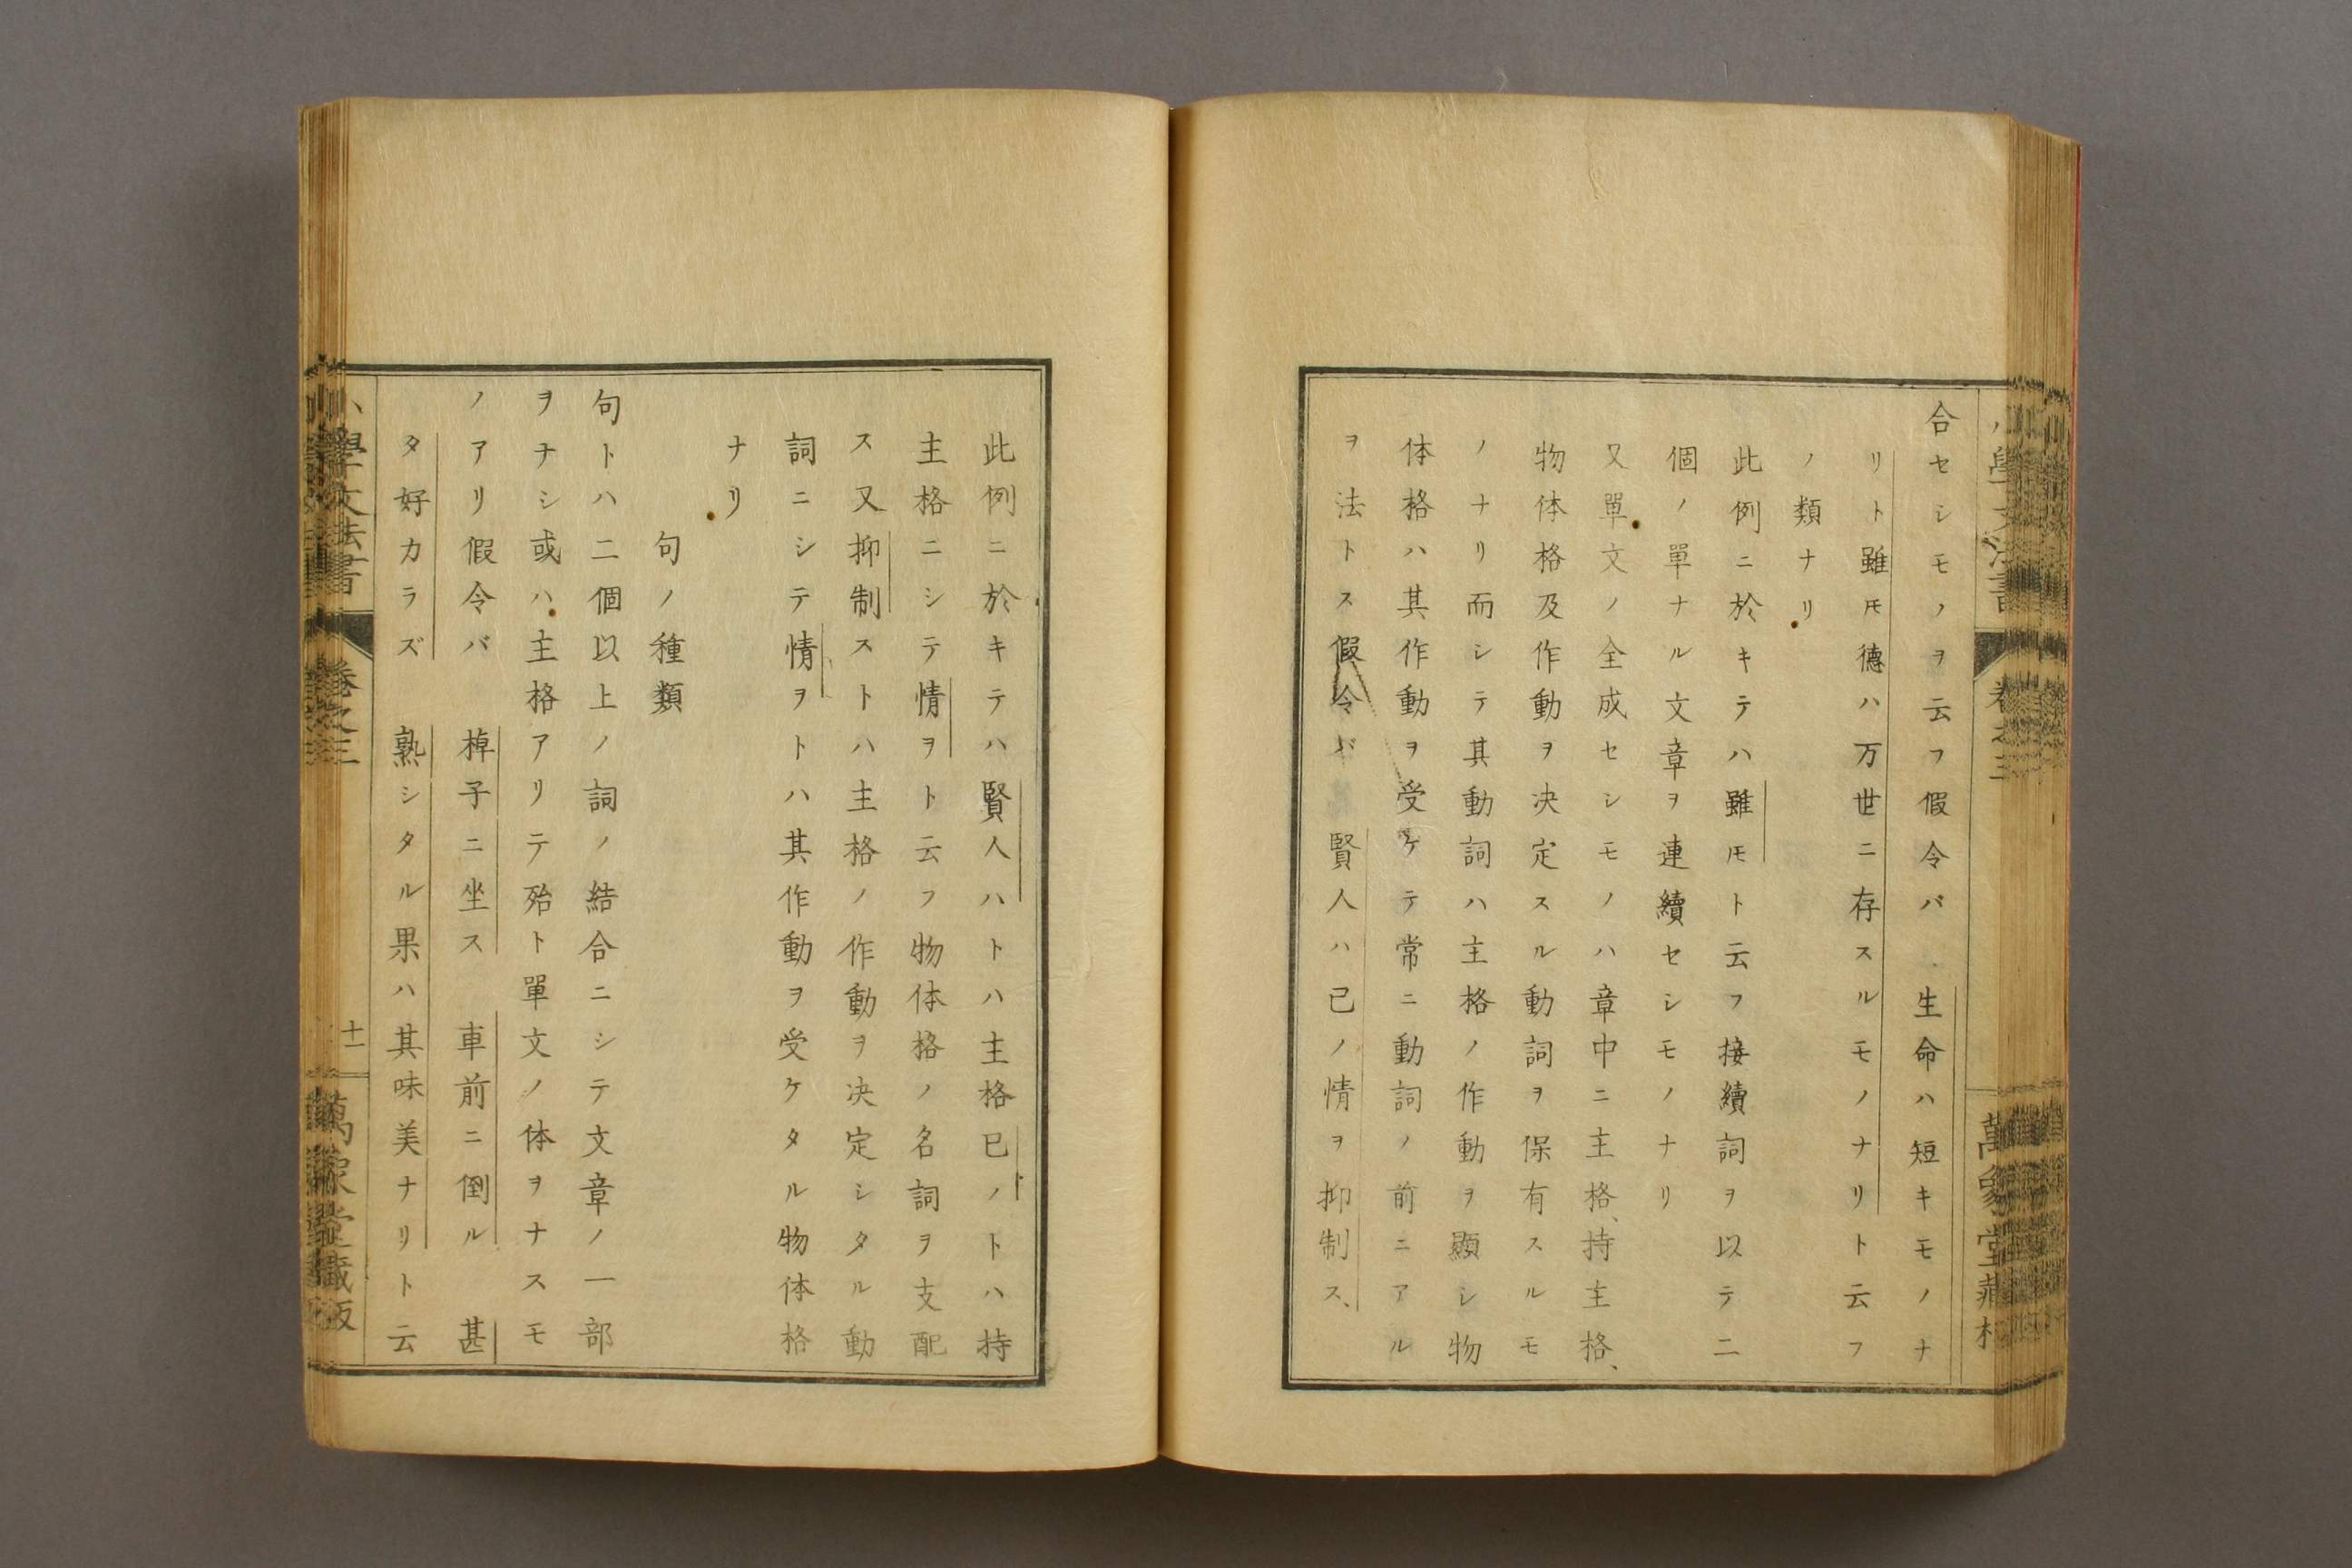 合セシモノヲ云フ假令バ 生命ハ短キモノナ
リト雖𪜈德ハ万世ニ存スルモノナリト云フ
ノ類ナリ
此例ニ於キテハ雖𪜈ト云フ接續詞ヲ以テ二
個ノ單ナル文章ヲ連續セシモノナリ
又單文ノ全成セシモノハ章中ニ主格、持主格、
物体格及作動ヲ决定スル動詞ヲ保有スルモ
ノナリ而シテ其動詞ハ主格ノ作動ヲ顯シ物
体格ハ其作動ヲ受ケテ常ニ動詞ノ前ニアル
ヲ法トス假令バ 賢人ハ己ノ情ヲ抑制ス、
此例ニ於キテハ賢人ハトハ主格已ノトハ持
主格ニシテ情ヲト云フ物体格ノ名詞ヲ支配
ス又抑制ストハ主格ノ作動ヲ决定シタル動
詞ニシテ情ヲトハ其作動ヲ受ケタル物体格
ナリ
句ノ種類
句トハ二個以上ノ詞ノ結合ニシテ文章ノ一部
ヲナシ或ハ主格アリテ殆ト單文ノ体ヲナスモ
ノアリ假令バ 棹子ニ坐ス 車前ニ倒ル 甚
タ好カラズ 熟シタル果ハ其味美ナリト云
小學文法書 卷之三 十一 萬象堂藏版